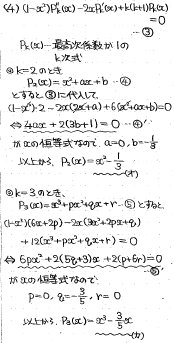 (4) (1-x²)P''ₖ(x)-2xP'ₖ(x)+k(k+1)Pₖ(x)
=0
…③
Pₖ(x)…最高次係数が1の
k次式
◎k=2のとき
P₂(x)=x²+ax+b …④
とすると③に代入して、
(1-x²)・2-2x(2x+a)+6(x²+ax+b)=0
⇔ 4ax+2(3b+1)=0
がxの恒等式なので a=0, b=-1/3
以上から、P₂(x)=x²-1/3
(オ)
◎k=3のとき、
P₃(x)=x³+px²+qx+r …⑤とすると、
(1-x²)(6x+2p)-2x(3x²+2px+q)
+12(x³+px²+qx+r)=0
⇔ 6px²+2(5q+3)x+2(p+6r)=0
がxの恒等式なので
p=0, q=-3/5, r=0
以上から、P₃(x)=x³-3/5x
(カ)